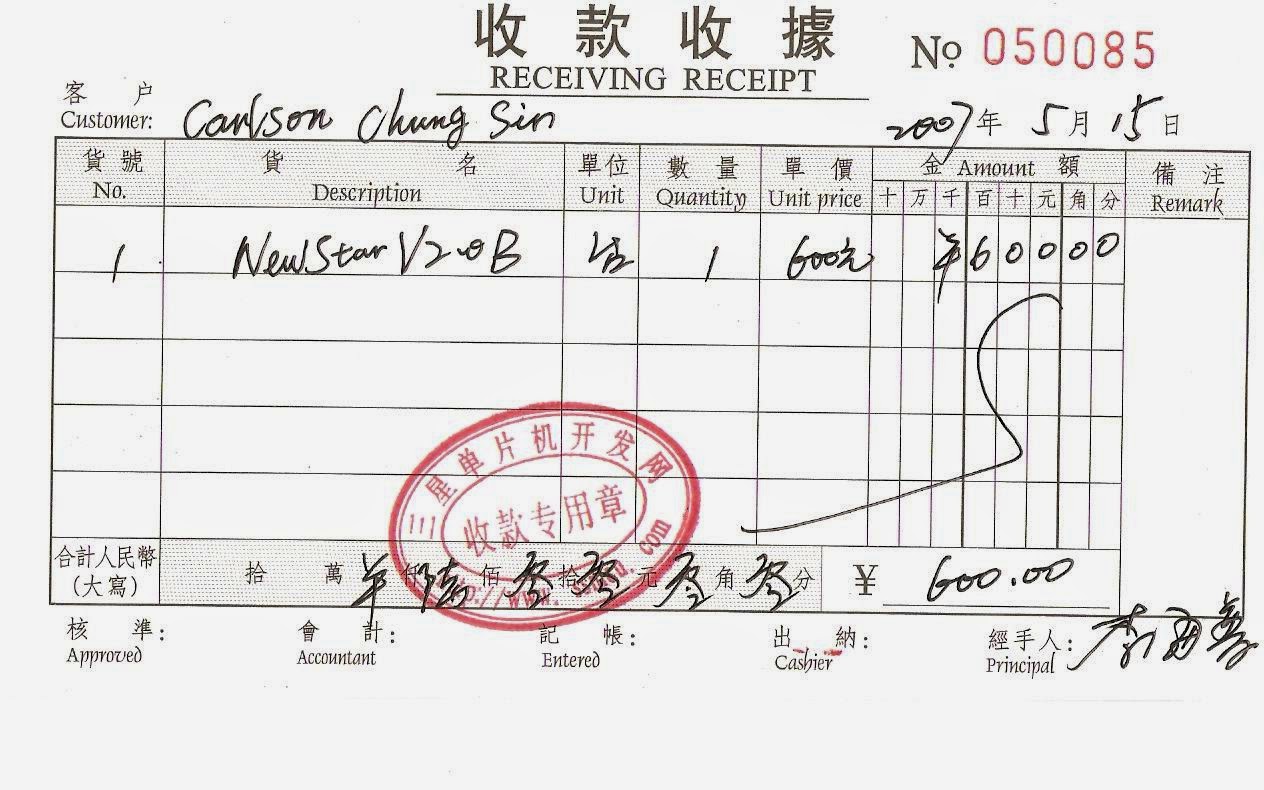 收款收據
RECEIVING RECEIPT
№ 050085
客户
Customer: Carlson Chung Sin
2007年 5月 15日
貨號 貨名 單位 數量 單價 金 Amount 額 備注
No. Description Unit Quantity Unit price 十 万 千 百 十 元 角 分 Remark
1 NewStar V2.0B 1 600元 ¥ 6 0 0 0 0
三星单片机开发网
收款专用章
合計人民幣 拾 萬 ¥ 仟 陆 佰 零 拾 零 元 零 角 零 分 ¥ 600.00
(大寫)
核準: 會計: 記帳: 出納: 經手人:
Approved Accountant Entered Cashier Principal